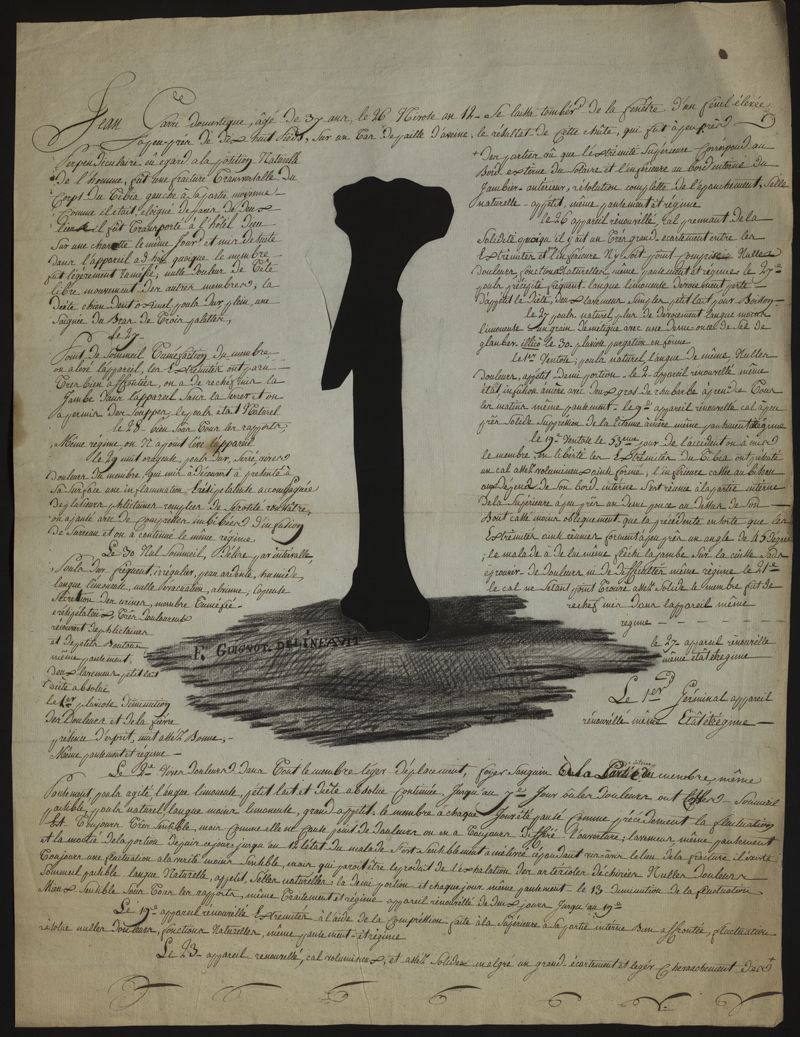 Jean Carré domestique, âgé de 37 ans, le 26 Nivose an 12 se laissa tomber de la fenêtre d'un fenil élevée
à peu près de dix huit Pieds, sur un tas de paille d'avoine; le résultat de cette chute, qui fut à peu près
Perpendiculaire eu égard a la position Naturelle
de l'homme, fut une fracture Transversalle du
Corps du Tibia gauche à sa partie moyenne
Comme il était éloigné de Paris de deux
Lieux il fut Transporté à l'hôtel Dieu
Sur une charette le même jour et mis de suite
dans l'appareil a 3
fut légèrement Tumefié, nulle douleur de Tête
libre mouvement des autres membres, la
diète
Saignée du Bras de Trois palettes,
Le 27
Point de Sommeil Tuméfaction du membre,
on a levé l'appareil, les Extrémités ont paru
Très bien affrontées, on a de rechef mis la
Jambe dans l'appareil sans la serrer et on
a permis des souppes, le pouls était Naturel
le 28 bien sous Tous les rapports,
Même régime, on n'a point levé l'appareil
le 29 nuit orageuse, pouls dur, serré, vives
douleurs du membre, qui mis à découvert a présenté à
Sa surface une inflammation Erésipelateuse accompagnée
de plusieurs phlictaines remplies de Sérosité roussâtre,
on a pansé avec des compresses imbibées d'infusion
de Sureau et on continue le même régime
Le 30 Nul Sommeil, Délire par intervalle,
Pouls dur fréquent, irrégulier, peau ardente, humide,
langue limoneuse, nulle
Sécretion des urines, membre Tuméfié
erésipelateux Très Douloureux
recouvert de phlictaines
et de petits Boutons
même pansement,
deux lavemens petit lait
diète absolue
le 1er pluviose diminution
des Douleurs et de la fièvre
présence d'esprit, nuit assés Bonne,
Même pansement et régime
+ des parties où que l'extrémité Supérieure correspond au
Bord externe du Solaire et l'inférieure au bord interne du
Jambier antérieur, résolution complette de l'épanchement, Selle
naturelle appétit, même pansement et régime
le 26 appareil renouvellé, Cal prennant de la
Solidité quoiqu'il y ait un Très grand écartement entre les
Extrémités et
douleurs fonctions Naturelles, même pansement et régime le 27
pouls précipité fréquent langue limoneuse dévoiement perte
d'appétit le diète, deux lavemens simples petit lait pour Boisson
le 29 pouls naturel, plus de dévoiement langue moins
limoneuse un grain d'émétique avec une demie once de Sel de
glauber. illico le 30 pluviose purgation en forme
le 1er Ventose, pouls naturel langue de même Nulles
douleurs, appétit demi portion le 2 appareil renouvellé même
état, infusion amère avec deux gros de rhubarbe à prendre Tous
les matins même pansement le 9e appareil renouvellé cal à peu
près Solide Suppression de la tisanne amère même pansement et régime
le 19e Ventose le 53eme jour de l'accident on a mis
le membre en liberté les Extrémités du Tibia ont présenté
un cal assés volumineux ainsi formé; l'inférieure cassée en biseau
aux dépends de son bord interne
de la Supérieure à peu près un demi pouce au dessus de son
Bout cassé moins obliquement que la précédente en sorte que les
Extrémités ainsi réunies forment à peu près un angle de 45 Degrés
le malade a de lui même fléchi la jambe sur la cuisse sans
éprouver de douleurs ni de difficultés même régime le 21e
le cal ne s'étant point Trouvé assés Solide le membre fut de
rechef mis dans l'appareil même
regime
le 27 appareil renouvellé
même état et régime
Le 1er Germinal appareil
renouvellé même Etat et régime
Fs GUIGNOT DELINEAVIT
Le 2e Vives douleurs dans Tout le membre léger déplacement, foyer sanguin de la Partie du membre, même
Pansement pouls agité, langue limoneuse, petit lait et diète absolue continuée, Jusqu'au 7e Jour où les douleurs ont Cessé Sommeil
paisible, pouls naturel langue moins limoneuse, grand appétit; le membre à chaque Jour été pansé comme précédemment la fluctuation
est Toujours Très Sensible, mais comme elle ne cause point de douleurs on en a Toujours différé l'ouverture; lavemens même pansement
et la moitié de la portion depuis ce jour jusqu'au 12 l'état du malade s'est sensiblement amélioré cependant vis-à-vis le lieu de la fracture il existe
Toujours une fluctuation a la vérité moins sensible, mais qui parait être le produit de l'exhalation des artérioles déchirées Nulles douleurs
Sommeil paisible langue Naturelle, appétit, Selles naturelles; la demi portion et chaque jour même pansement le 13 diminution de la fluctuation
Mieux Sensible Sous Tous les rapports, même Traitement et régime appareil renouvellé de deux jours jusqu'au 19e
Le 19e appareil renouvellé Extrémités à l'aide de la Compression faite à la Supérieure à sa partie interne Bien affrontées, fluctuation
résolue nulles douleurs, fonctions Naturelles, même pansement et régime
Le 23 appareil renouvellé, cal volumineux, et assés Solide malgré un grand écartement et léger Chevauchement des +